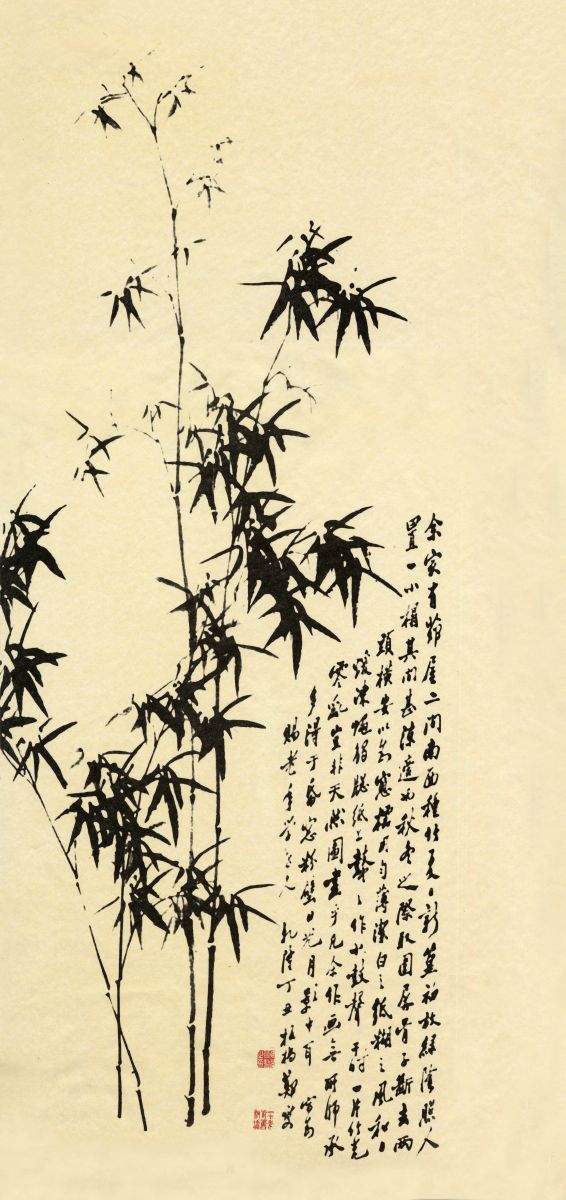 余家有茆屋二間南面種竹夏日新篁初放綠陰照人
置一小榻其間甚凉適也秋冬之際取圍屏骨子斷去兩
頭橫安以為窓櫺用勻薄潔白之紙糊之風和日
煖凍蠅觸窓紙上鼕々作小鼓聲于時一片竹光
零亂豈非天然圖畫乎凡余作画無所師承
多得于帋窓粉壁日光月影中耳
賜老年學兄 乾隆丁丑板橋鄭燮